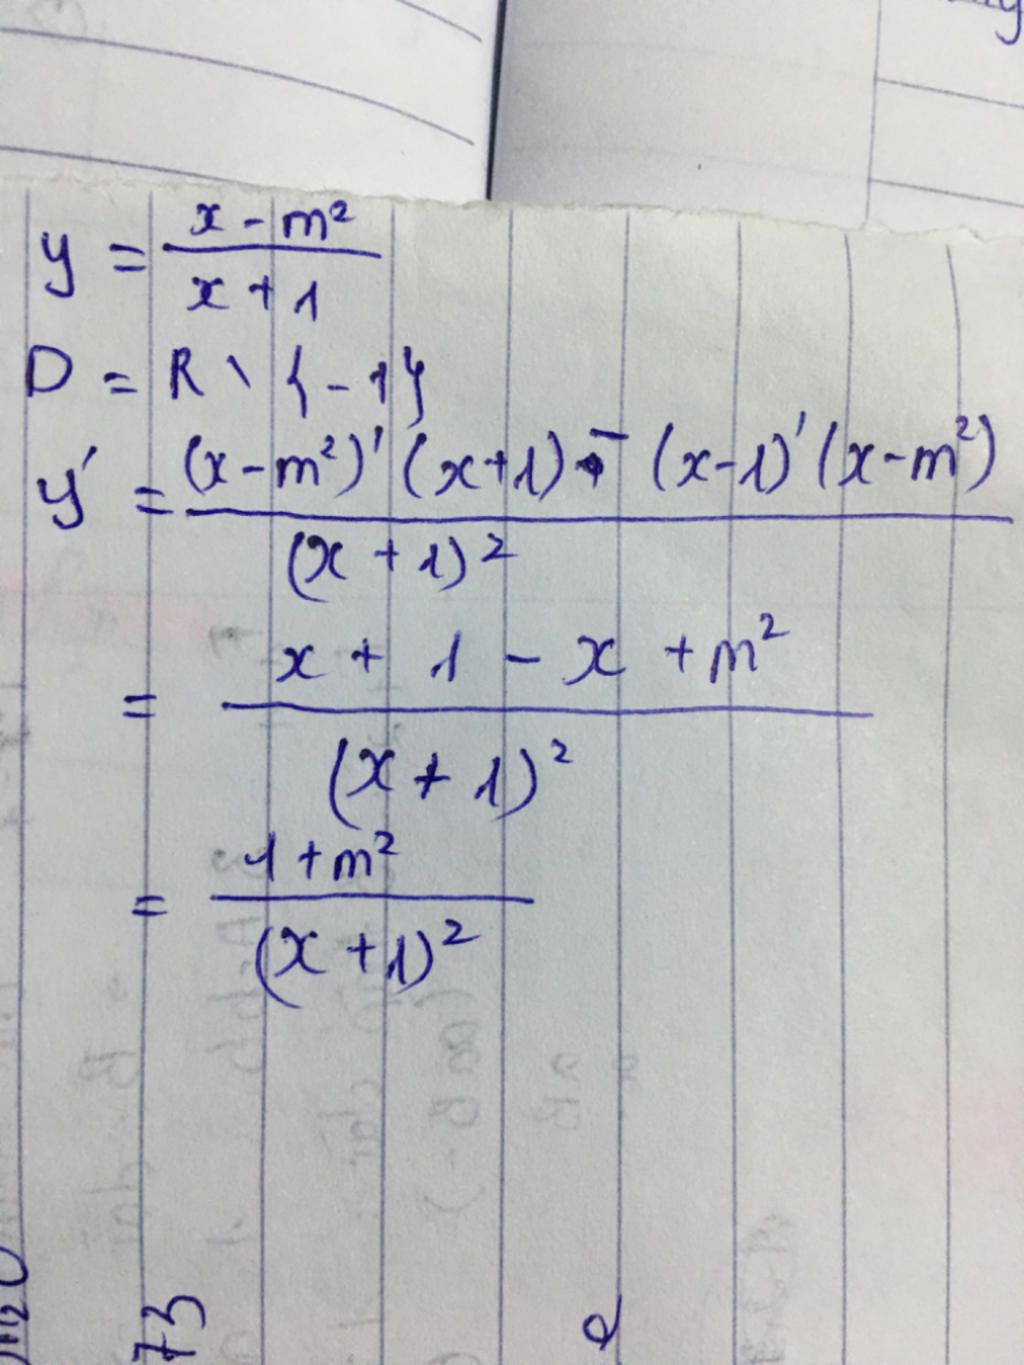 y = \frac{x - m^2}{x + 1}
D = R \ {-1}
y' = \frac{(x - m^2)' (x + 1) - (x - 1)' (x - m^2)}{(x + 1)^2}
= \frac{x + 1 - x + m^2}{(x + 1)^2}
= \frac{1 + m^2}{(x + 1)^2}
73
e